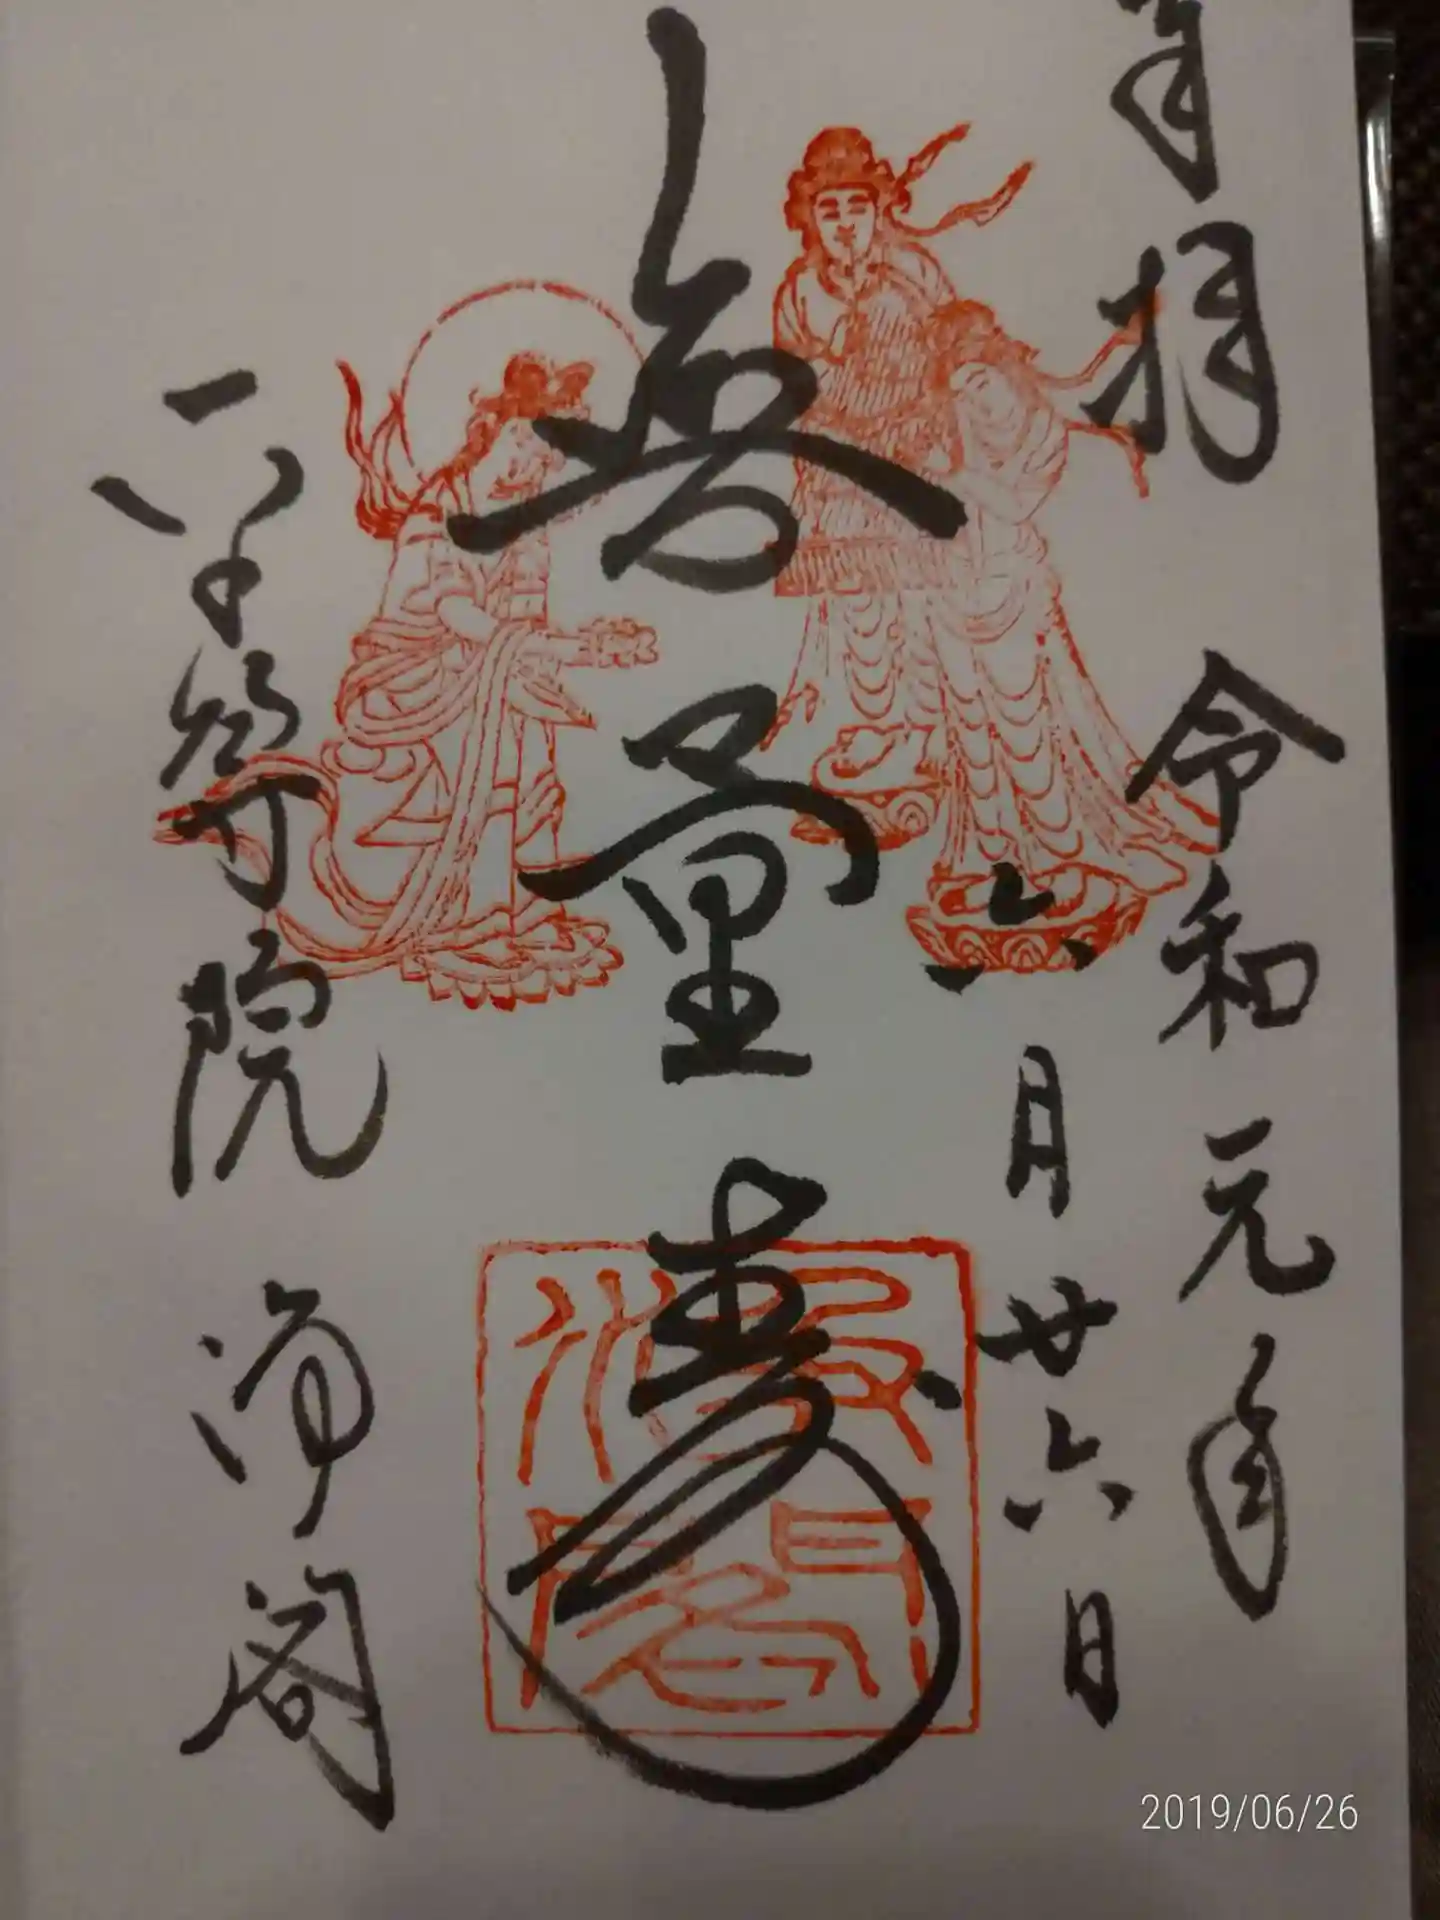 奉拝
令和元年
六月廿六日
無量壽
平等院 浄閣
2019/06/26